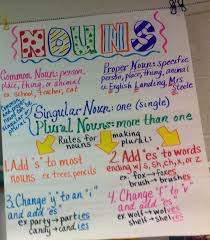 NOUNS
Common Noun: person,
place, thing, or animal
ex: school, teacher, cat
Proper Noun: specific
person, place, thing, animal
ex: English Landing, Mrs.
Steele
Singular Noun: one (single)
Plural Nouns: more than one
Rules for making
nouns plural:
1. Add "s" to most
nouns ex: trees, pencils
2. Add "es" to words
ending w/ s, sh, ch, x, or z
ex: fox → foxes
brush → brushes
3. Change "y" to an "i"
and add "es"
ex: party → parties
candy → candies
4. Change "f" to "v"
and add "es"
ex: wolf → wolves
shelf → shelves